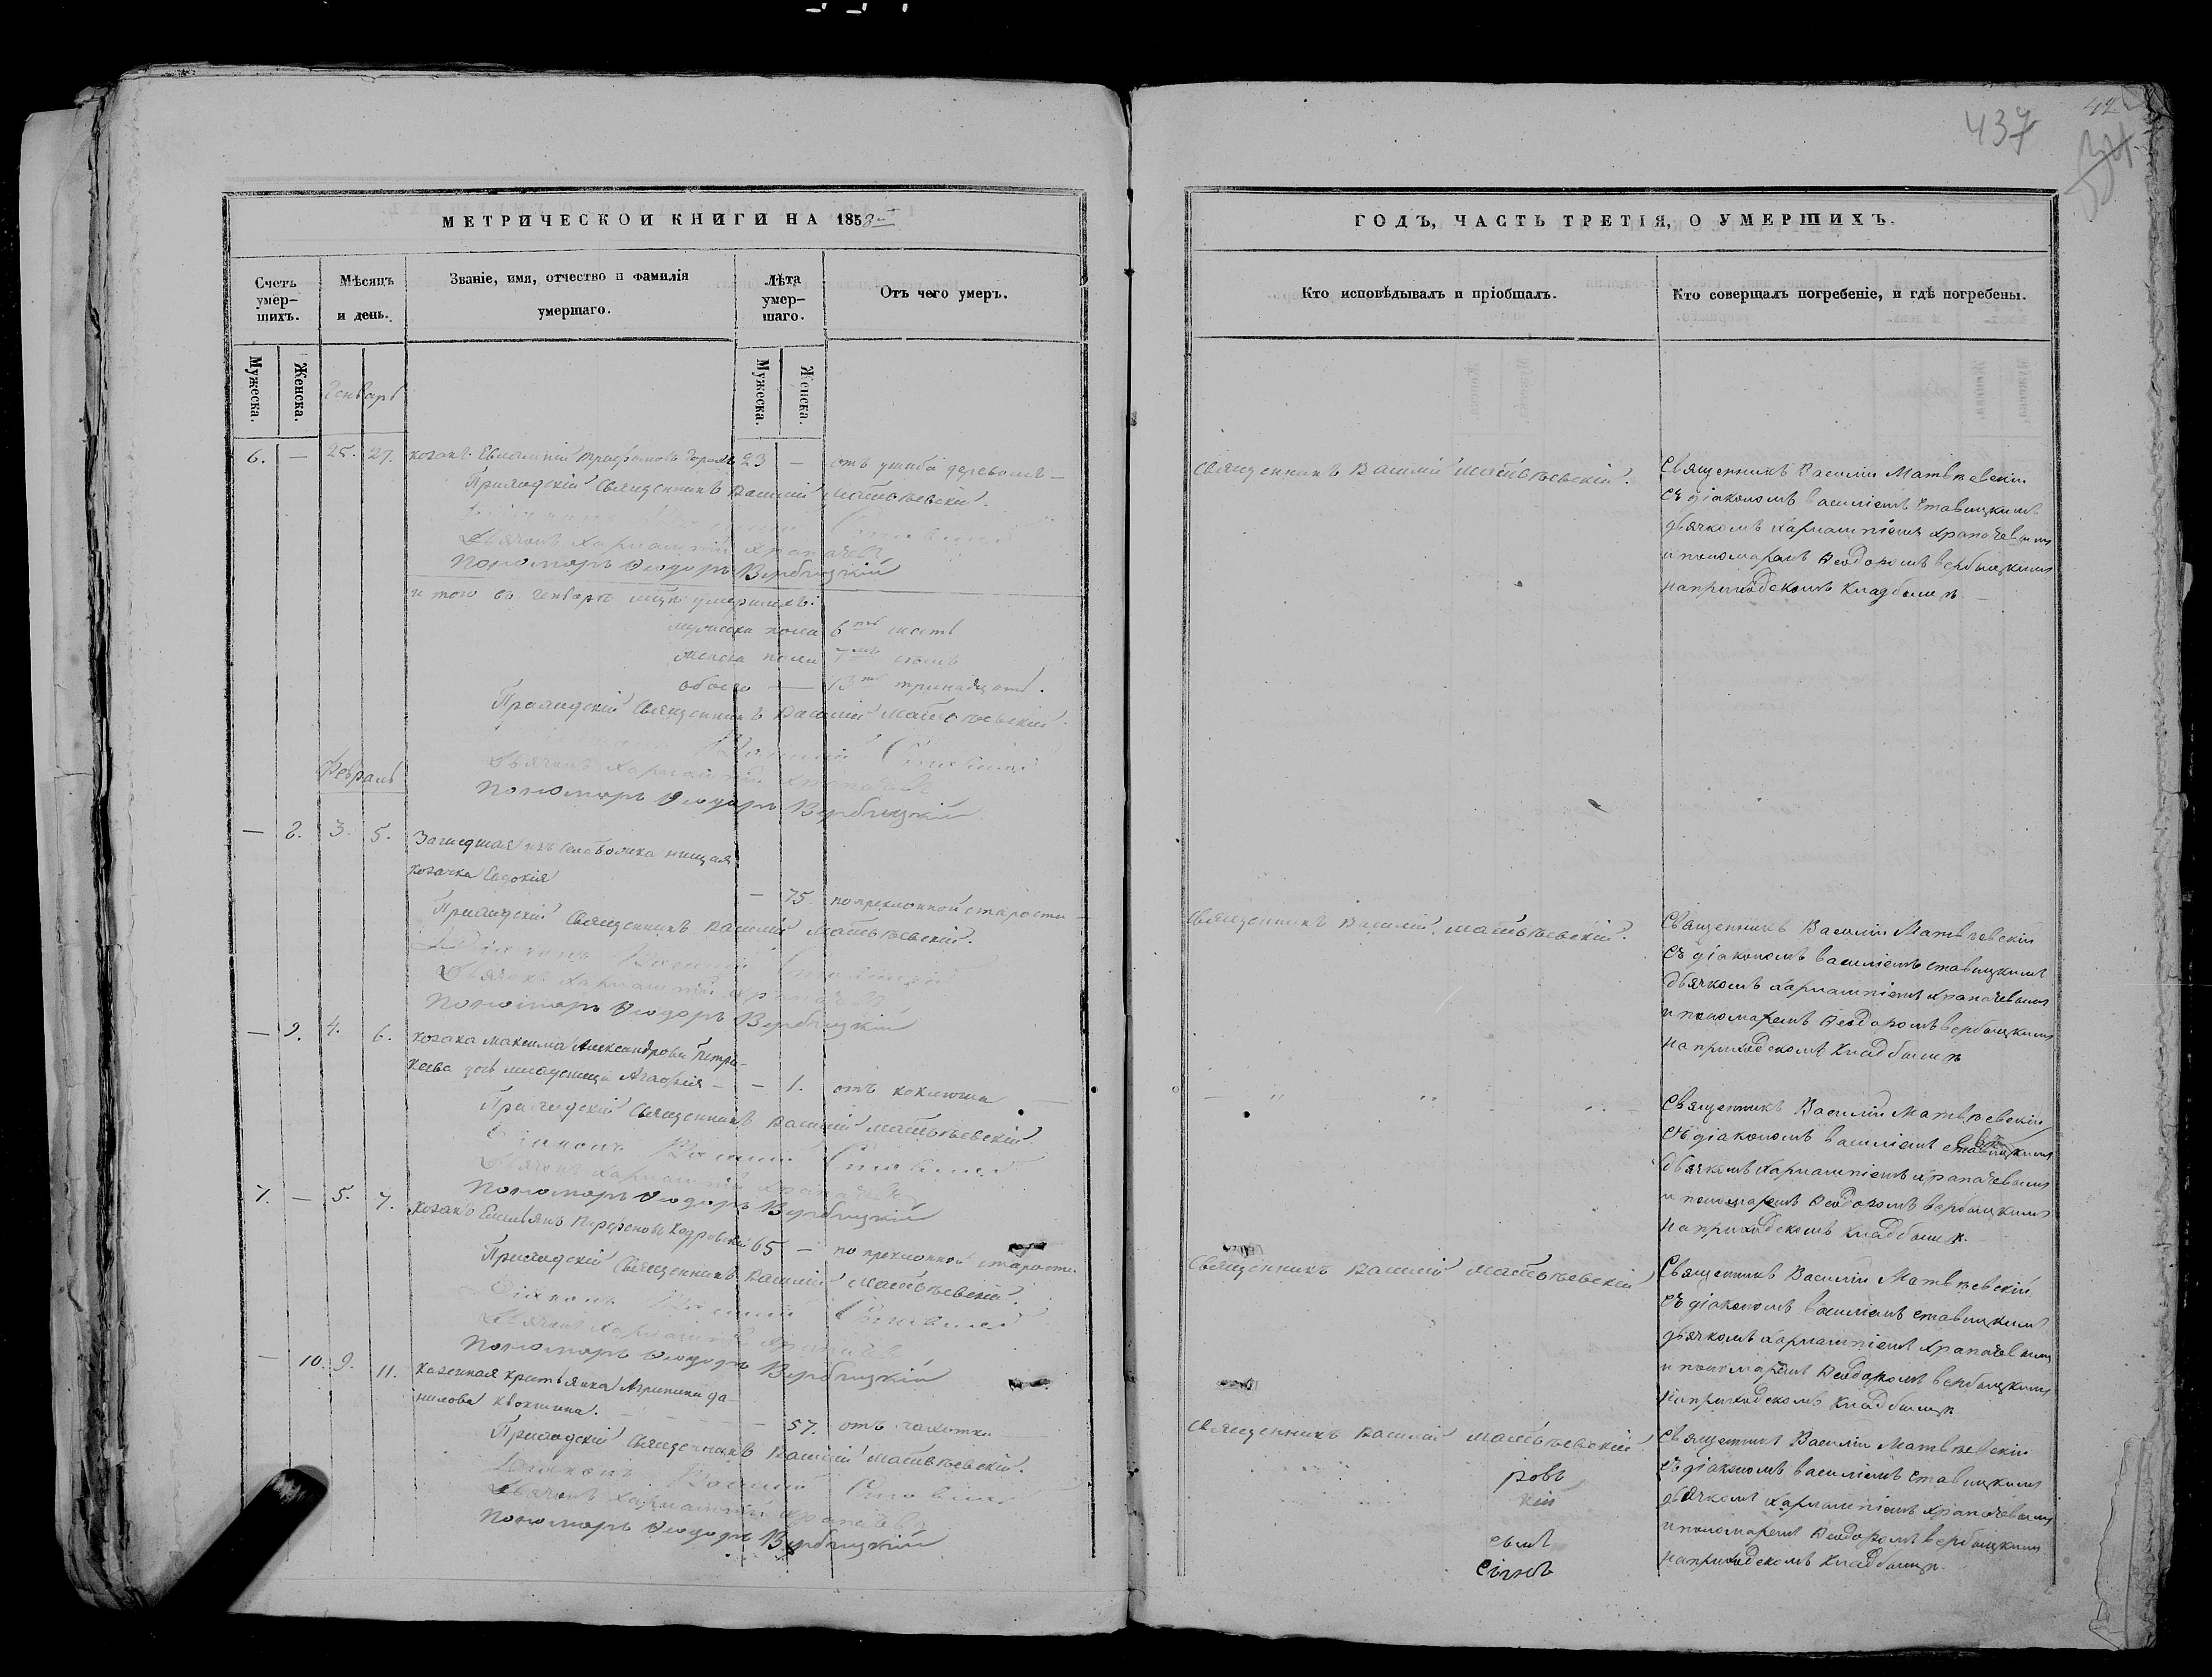 437
42
МЕТРИЧЕСКОИ КНИГИ НА 1858
Счетъ умер-шихъ.
Мѣсяцъ и день.
Званіе, имя, отчество и фамилія умершаго.
Лѣта умер-шаго.
Отъ чего умеръ.
Мужеска.
Женска.
Генварь
Мужеска.
Женска.
6. — 25. 27. козакъ Евлампій Трофимовъ 23 — отъ ушиба деревомъ —
Приходскій Священникъ Василій Матвѣевскій.
Дьячокъ Харлампій Храпачевъ
Пономарь Ѳеодоръ Вербицкій
итого въ Генварѣ мцѣ умершихъ:
мужеска пола 6 шесть
женска пола 7 семь
обоего — 13 тринадцать.
Приходскій Священникъ Василій Матвѣевскій.
Василій Ставицкій
Дьячокъ Харлампій Храпачевъ
Пономарь Ѳеодоръ Вербицкій
Февраль
— 8. 3. 5. Зашедшая изъ села нищая
козачка Евдокія
— 75. по преклонной старости
Приходскій Священникъ Василій Матвѣевскій.
Діаконъ Василій Ставицкій
Дьячокъ Харлампій Храпачевъ
Пономарь Ѳеодоръ Вербицкій
— 9. 4. 6. козака Максима Александрова Петри-
кеева дочь младенецъ Агафія — — 1. отъ коклюша
Приходскій Священникъ Василій Матвѣевскій
Діаконъ Василій Ставицкій
Дьячокъ Харлампій Храпачевъ
Пономарь Ѳеодоръ Вербицкій
7. — 5. 7. козакъ Емельянъ Парфеновъ 65 — по преклонной старости
Приходскій Священникъ Василій Матвѣевскій.
Діаконъ Василій Ставицкій
Дьячокъ Харлампій Храпачевъ
Пономарь Ѳеодоръ Вербицкій
— 10. 9. 11. казенная крестьянка Агрипина Да-
нилова — 57. отъ чахотки
Приходскій Священникъ Василій Матвѣевскій.
Діаконъ Василій Ставицкій
Дьячокъ Харлампій Храпачевъ
Пономарь Ѳеодоръ Вербицкій
ГОДЪ, ЧАСТЬ ТРЕТІЯ, О УМЕРШИХЪ.
Кто исповѣдывалъ и пріобщалъ.
Кто совершалъ погребеніе, и гдѣ погребены.
Священникъ Василій Матвѣевскій.
Священникъ Василій Матвѣевскій
съ діакономъ Василіемъ Ставицкимъ
дьячкомъ Харлампіемъ Храпачевымъ
и пономаремъ Ѳеодоромъ Вербицкимъ
на приходскомъ кладбищѣ
Священникъ Василій Матвѣевскій.
Священникъ Василій Матвѣевскій
съ діакономъ Василіемъ Ставицкимъ
дьячкомъ Харлампіемъ Храпачевымъ
и пономаремъ Ѳеодоромъ Вербицкимъ
на приходскомъ кладбищѣ
— " " "
Священникъ Василій Матвѣевскій
съ діакономъ Василіемъ Ставицкимъ
дьячкомъ Харлампіемъ Храпачевымъ
и пономаремъ Ѳеодоромъ Вербицкимъ
на приходскомъ кладбищѣ.
Священникъ Василій Матвѣевскій
Священникъ Василій Матвѣевскій
съ діакономъ Василіемъ Ставицкимъ
дьячкомъ Харлампіемъ Храпачевымъ
и пономаремъ Ѳеодоромъ Вербицкимъ
на приходскомъ кладбищѣ
Священникъ Василій Матвѣевскій
Священникъ Василій Матвѣевскій
съ діакономъ Василіемъ Ставицкимъ
дьячкомъ Харлампіемъ Храпачевымъ
и пономаремъ Ѳеодоромъ Вербицкимъ
на приходскомъ кладбищѣ.